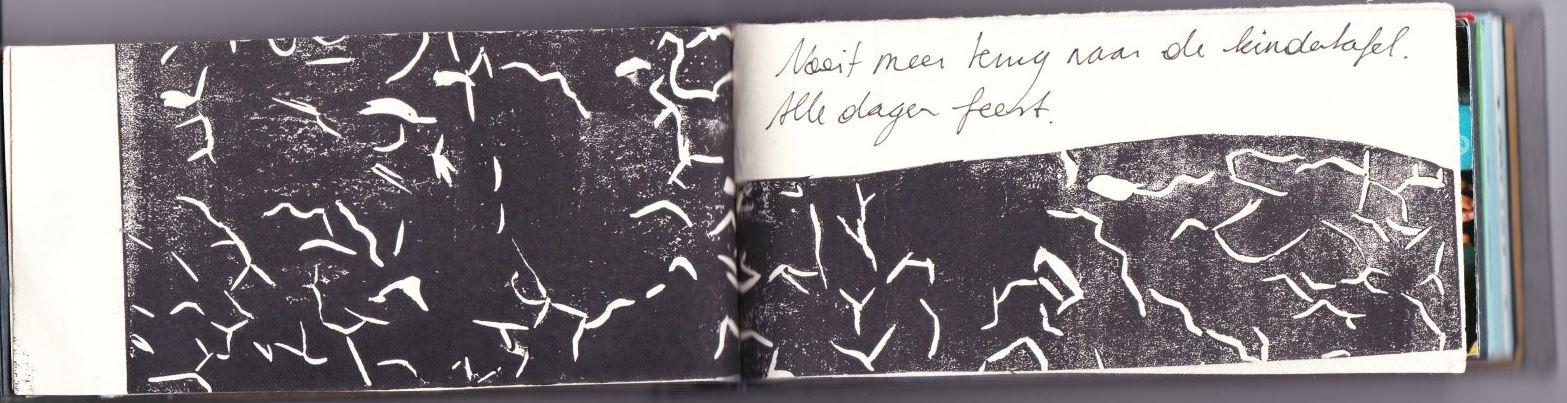 Nooit meer terug naar de kindertafel.
Alle dagen feest.